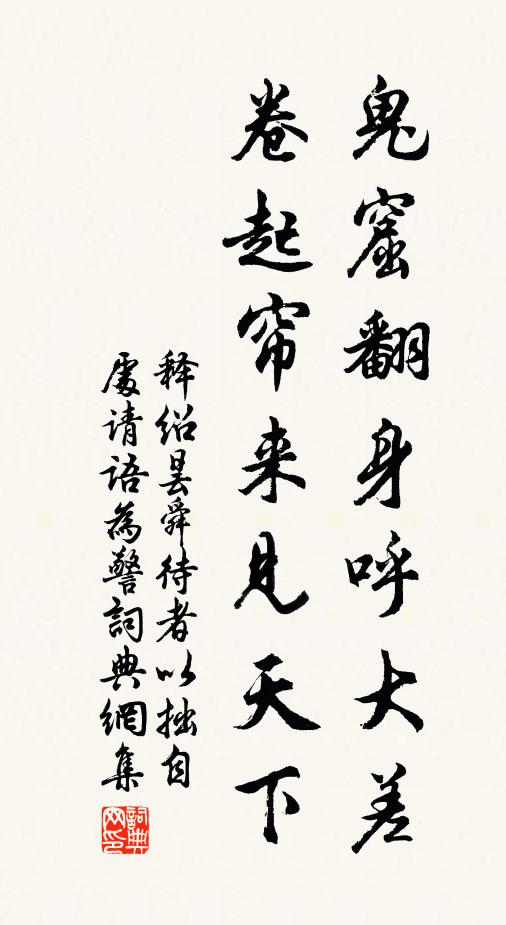 鬼窟翻身呼大差
卷起帘来见天下
释绍昙舜待者以拙自
處请语為警詞典網集
詞典网印